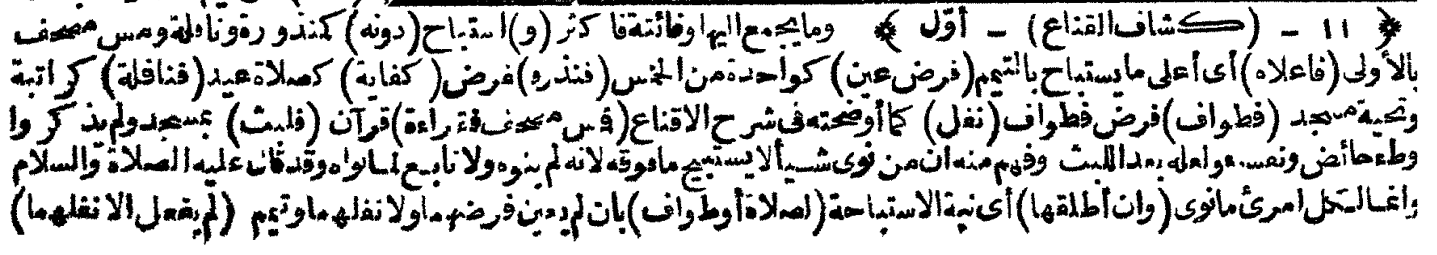 ﴿ ١١ – (كشاف القناع) – أول ﴾ وما يجمع اليها وفائتة فاكثر (و) استباح (دونه) كمنذورة ونافلة ومس مصحف
بالأولى (فاعلاه) أى أعلى ما يستباح بالتيمم (فرض عين) كواحدة من الخمس (فنذره) فرض (كفاية) كصلاة عيد (فنافلة) كراتبة
وتحية مسجد (فطواف) فرض فطواف (نفل) كما أوضحته فى شرح الاقناع (فمس مصحف فقراءة) قرآن (فلبث) بمسجد ولم يذكروا
وطء حائض ونفسـ ولعله بعد اللبث وفهم منه ان من نوى شيـأ لا يستبيح ما فوقه لانه لم ينوه ولا تابع لما نواه وقد قال عليه الصلاة والسلام
وانما لكل امرئ ما نوى (وان أطلقها) أى نية الاستباحة (لصلاة أو طواف) بان لم يعين فرضهما ولا نفلهما وتيمم (لم يفعل الا نفلهما)